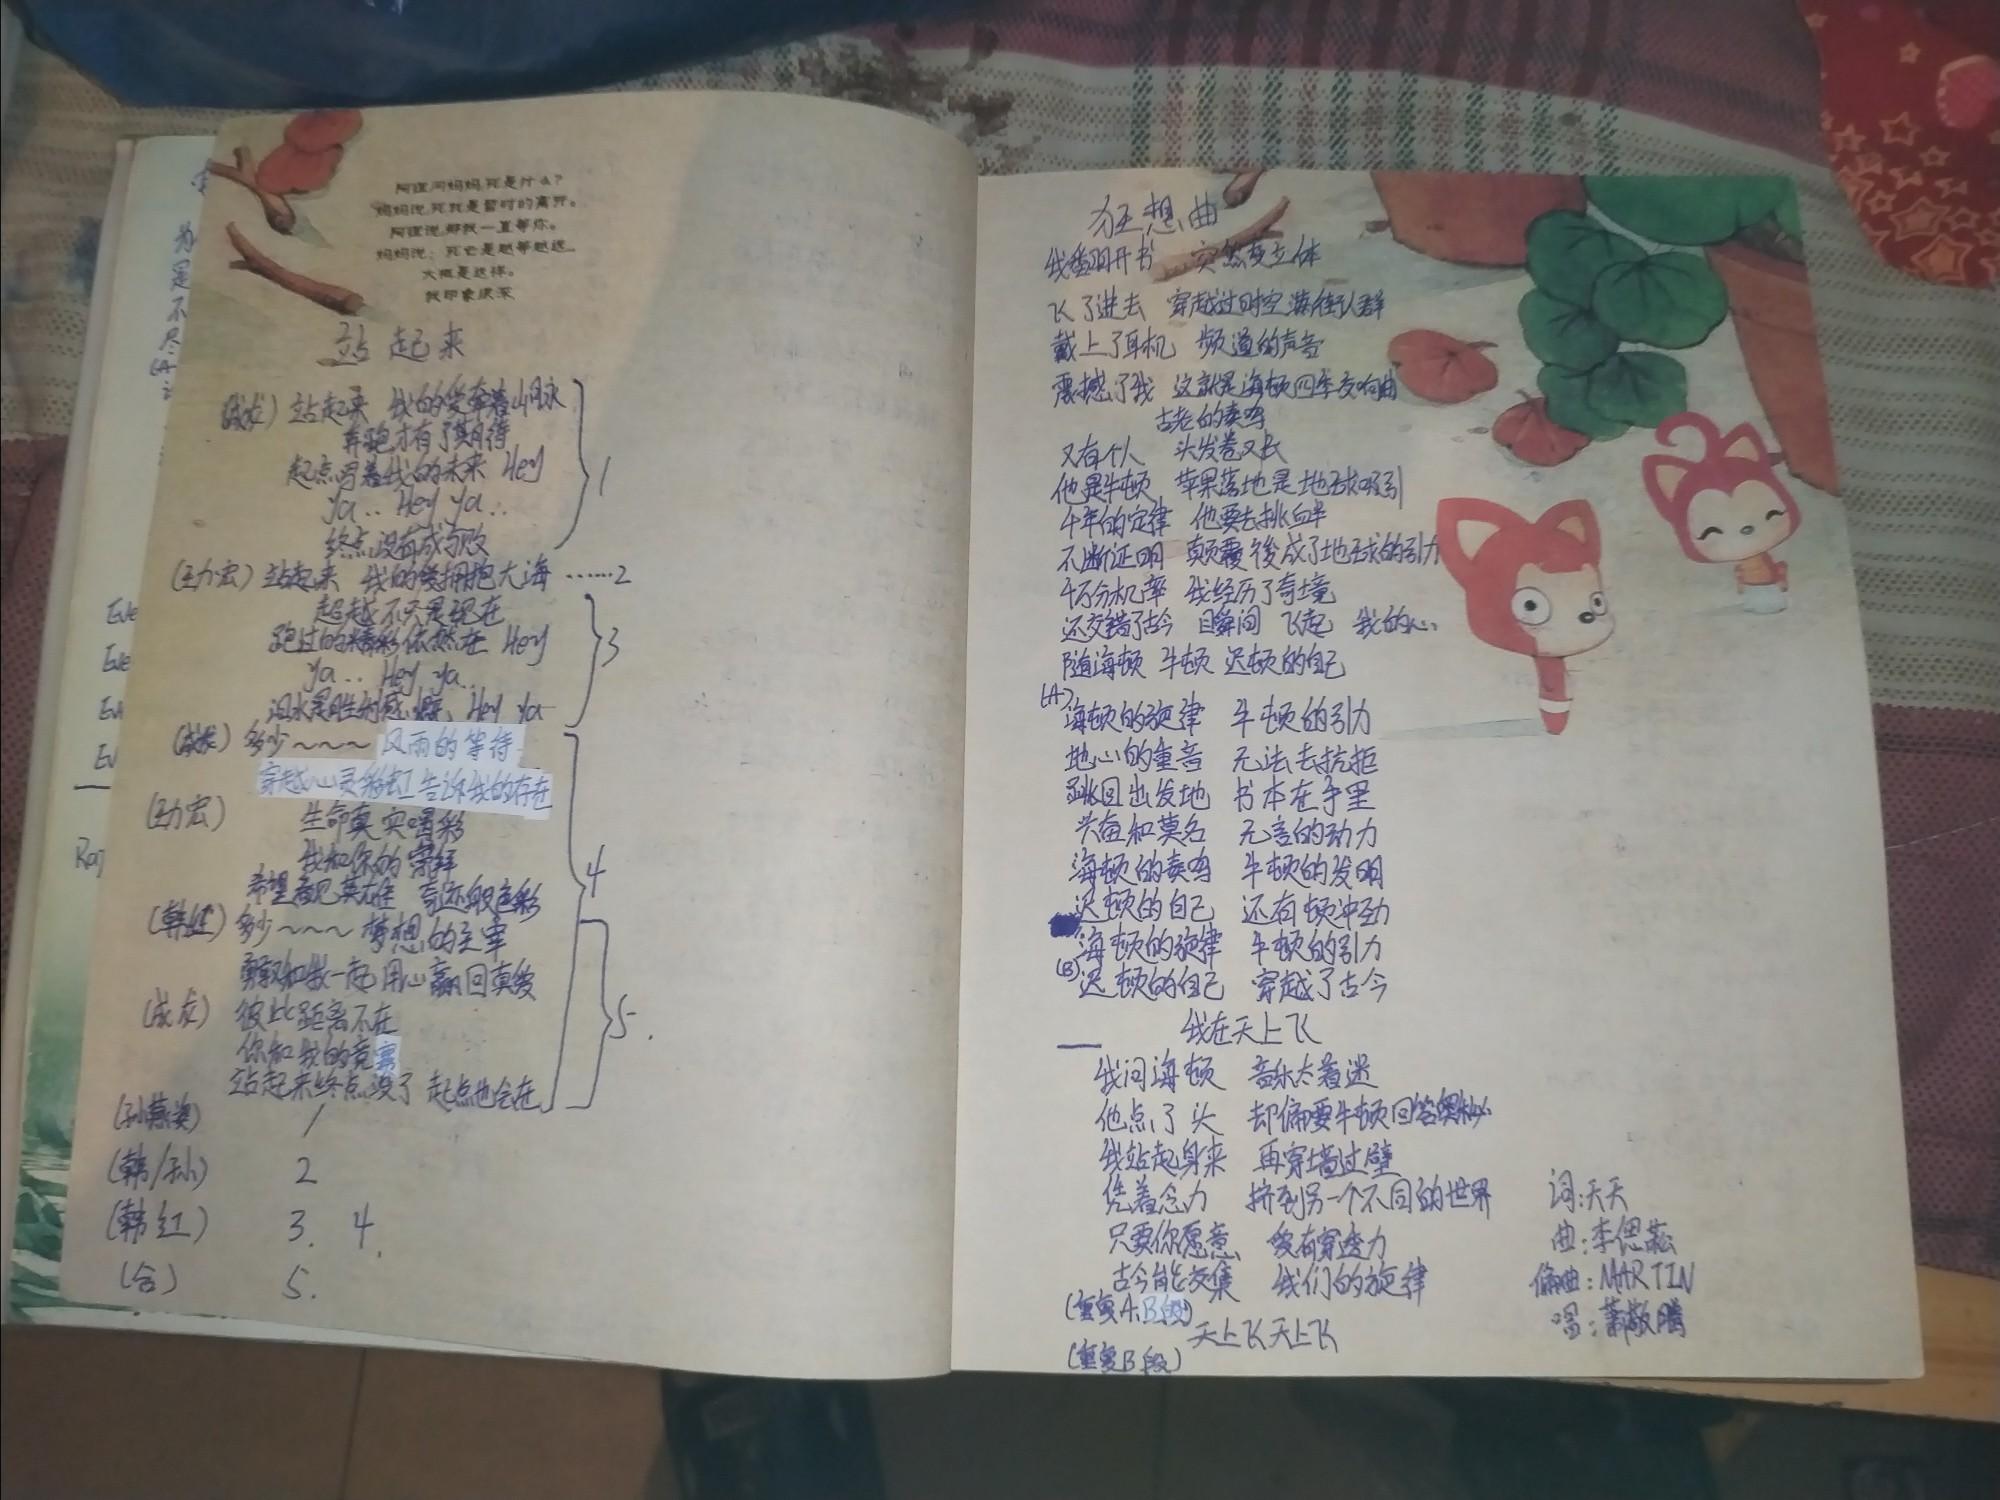 阿狸问妈妈,死是什么?
妈妈说,死就是暂时的离开。
阿狸说,那我一直等你。
妈妈说:死亡是越等越远。
大概是这样。
我印象很深
站起来
(成龙) 站起来 我的爱奔着山川永
奔跑才有了期待
起点写着我的未来 Hey
ya.. Hey ya..
终点没有成与败
1
(王力宏) 站起来 我的爱拥抱大海 ……2
超越不只是现在
跑过的精彩依然在 Hey
ya.. Hey ya..
泪水是胜利感慨 Hey ya
3
(成龙) 多少~~~~风雨的等待
穿越心灵彩虹 告诉我的存在
(王力宏) 生命真实喝彩
我和你的崇拜
希望看见英雄 奇迹般色彩
4
(韩红) 多少~~~~梦想的主宰
勇敢和我一起用心赢回真爱
(成龙) 彼此距离不在
你和我的竞赛
站起来终点没了 起点也会在
5.
(孙燕姿) 1
(韩/孙) 2
(韩红) 3. 4.
(合) 5.
狂想曲
我翻开书 突然变立体
飞了进去 穿越过时空 满街人群
戴上了耳机 频道的声音
震撼了我 这就是海顿四季交响曲
古老的奏鸣
又有个人 头发卷又长
他是牛顿 苹果落地是地球吸引
千年的定律 他要去挑衅
不断证明 颠覆後成了地球的引力
千万分机率 我经历了奇境
还交错了古今 一瞬间 飞起 我的心
随海顿 牛顿 迟顿的自己
(A)
海顿的旋律 牛顿的引力
地心的重音 无法去抗拒
跳回出发地 书本在手里
兴奋和莫名 无言的动力
海顿的奏鸣 牛顿的发明
迟顿的自己 还有顿冲劲
海顿的旋律 牛顿的引力
(B) 迟顿的自己 穿越了古今
我在天上飞
我问海顿 音乐太着迷
他点了头 却偏要牛顿回答奥秘
我站起身来 再穿墙过壁
凭着念力 挤到另一个不同的世界
只要你愿意 爱有穿透力
古今能交集 我们的旋律
(重复A.B段)
天上飞天上飞
(重复B段)
词:天天
曲:李偲菘
编曲:MARTIN
唱:萧敬腾